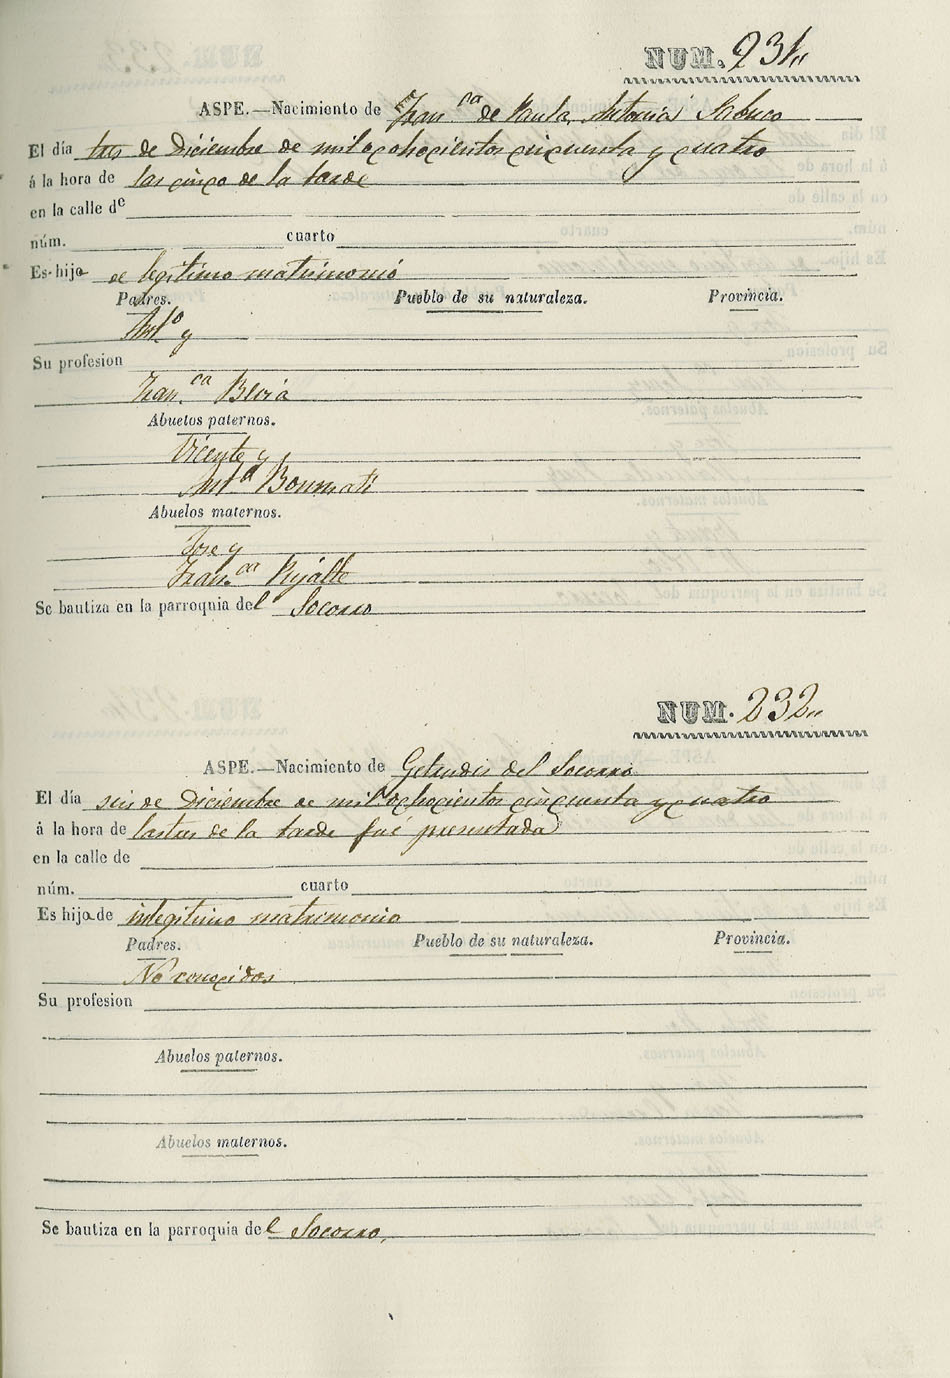 NUM. 231,,
ASPE.—Nacimiento de Fran.ca de Paula, Antonia Sabuco
El día tres de Diciembre de mil ochocientos cincuenta y cuatro
á la hora de las cinco de la tarde
en la calle de
núm. cuarto
Es hijo de legitimo matrimonio
Padres. Pueblo de su naturaleza. Provincia.
Ant.o y
Su profesion
Fran.ca
Abuelos paternos.
Vicente y
Ant.a Bonmati
Abuelos maternos.
Jose y
Fran.ca
Se bautiza en la parroquia del Socorro
NUM. 232,,
ASPE.—Nacimiento de Getrudis del Socorro
El día seis de Diciembre de mil ochocientos cincuenta y cuatro
á la hora de las tres de la tarde fué presentada
en la calle de
núm. cuarto
Es hija de inlegitimo matrimonio
Padres. Pueblo de su naturaleza. Provincia.
No conocidos
Su profesion
Abuelos paternos.
Abuelos maternos.
Se bautiza en la parroquia del Socorro.